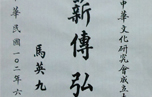 中華文化研究會成立
薪傳弘
馬英九
中華民國一〇二年六